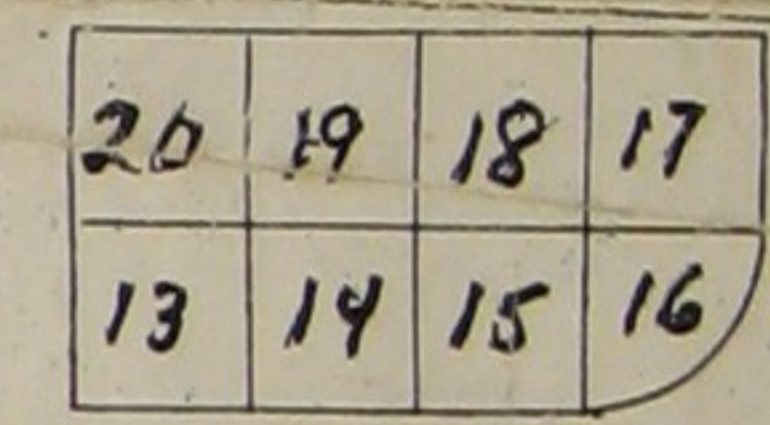 20 19 18 17
13 14 15 16